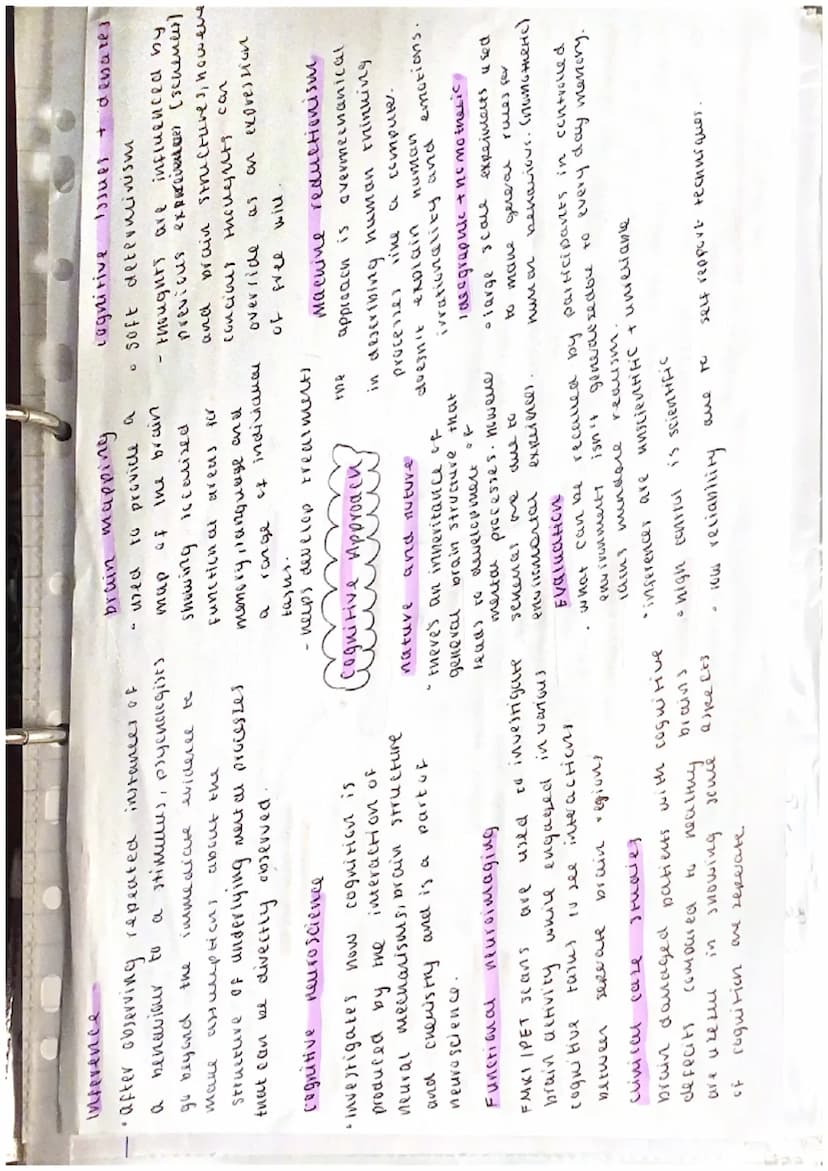 Inference
• After observing repeated instances of
a behaviour to a stimulus, psychologists
go beyond the immediate evidence to
make assumptions about the
structure of underlying mental processes
that can be directly observed.
Cognitive neuroscience
• investigates how cognition is
produced by the interaction of
neural mechanisms: brain structure
and chemistry and is a part of
neuroscience.
Functional neuroimaging
FMRI/PET scans are used to investigate
brain activity while engaged in various
cognitive tasks to see interactions
between seperate brain regions
Clinical case studies
brain damaged patients with cognitive
deficits compared to healthy brains
are useful in showing some aspects
of cognition are seperate
brain mapping
- used to provide a
map of the brain
showing localised
functional areas for
memory, language and
a range of individual
tasks.
- helps develop treatments
Cognitive Approach
nature and nuture
• there's an inheritance of
general brain structure that
leads to development of
mental processes. however
schemas are due to
environmental experiences.
Evaluation
• what can be recalled by participants in controlled
environment isn't generalisable to every day memory.
lacks mundane realism.
• inferences are unscientific + unreliable
• high control is scientific
• low reliability due to self report techniques.
cognitive issues + debates
• soft determinism
- thoughts are influenced by
previous experiences (schemas)
and brain structures, however
concious thoughts can
override as an expression
of free will.
Machine reductionism
the approach is overmechanical
in describing human thinking
processes like a computer.
doesn't explain human
irrationality and emotions.
Ideographic + nomothetic
• large scale experiments used
to make general rules for
human behaviour. (nomothetic)